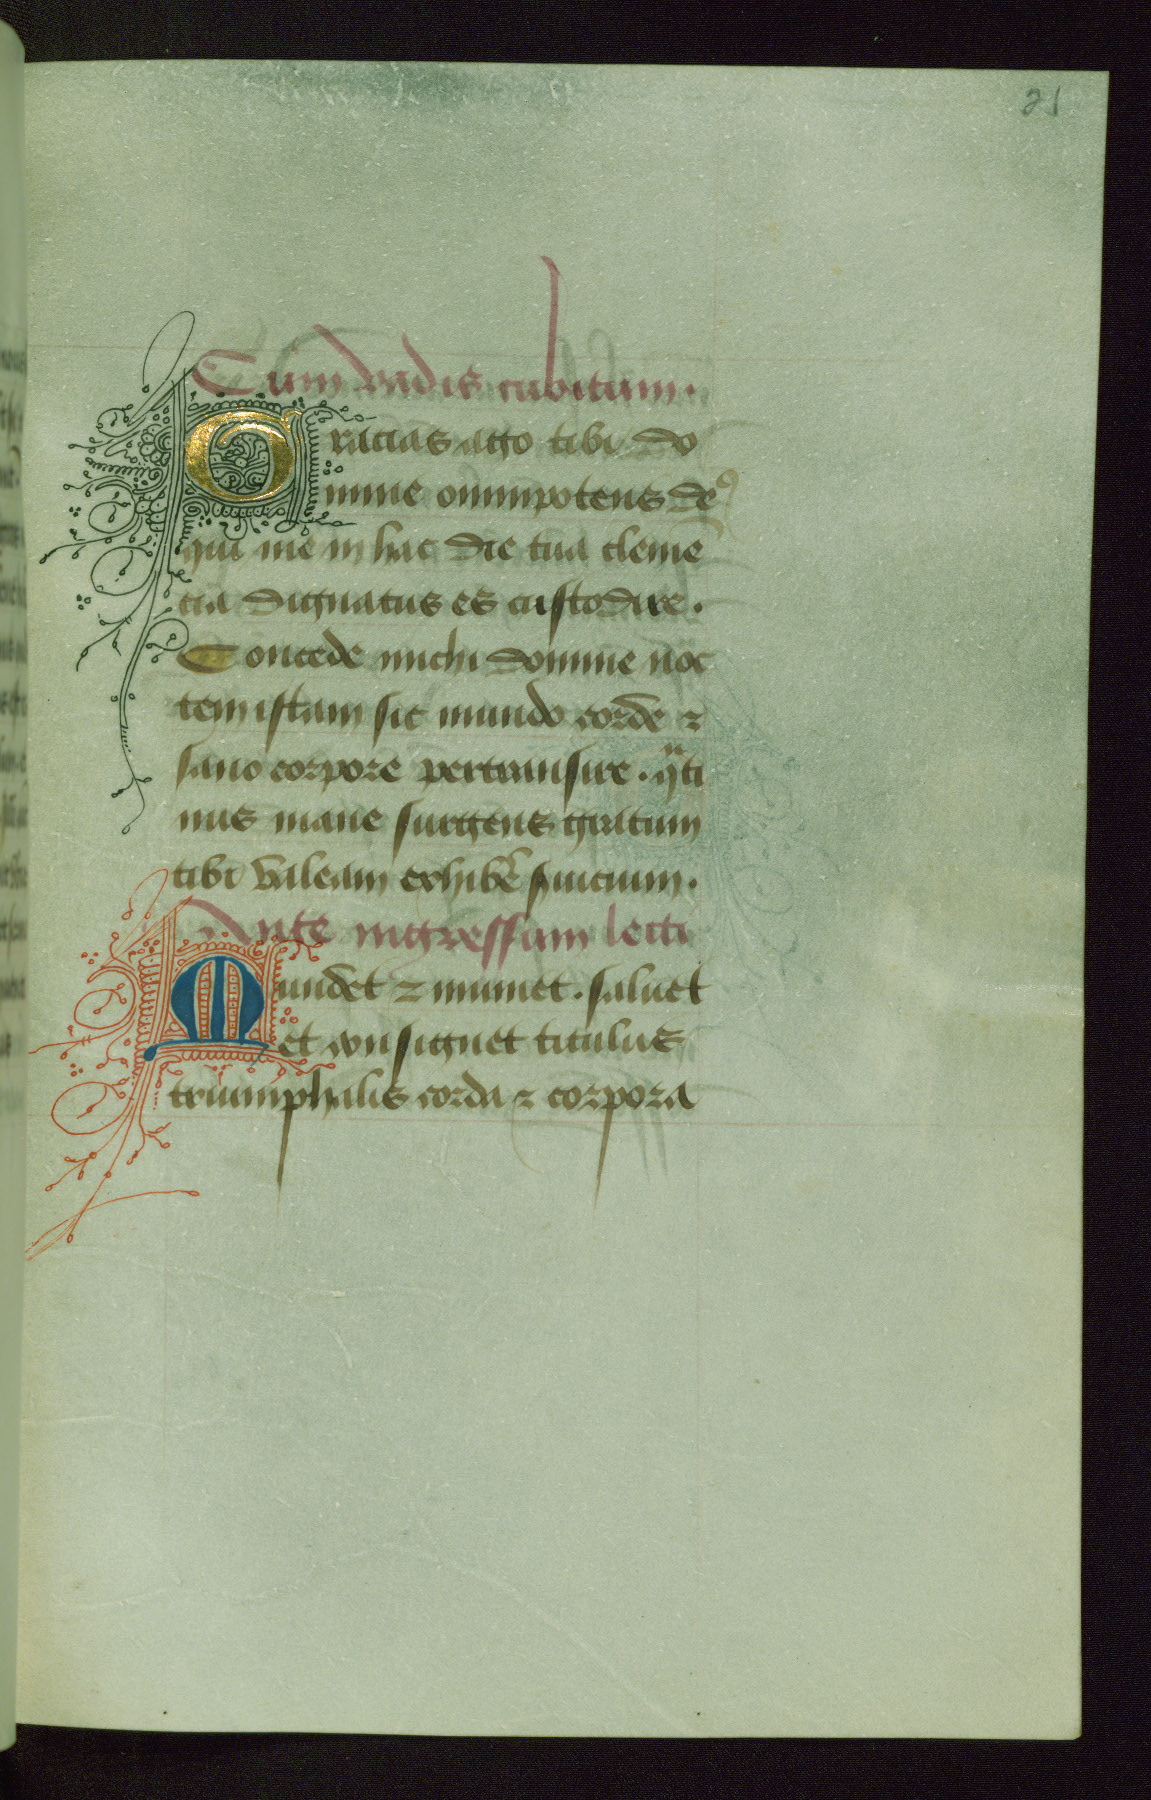 21
Cum vadis cubitum.
Gracias ago tibi do
mine omnipotens deꝰ
qui me in hac die tua clemē
cia dignatus es custodire.
Concede michi domine noc
tem istam sic mundo corde ⁊
sano corpore pertransire. qͣti
nus mane surgens gratum
tibi valeam exhibē seruicium.
Ante ingressum lecti
Mundet ⁊ muniet. saluet
et consignet titulus
triumphalis corda ⁊ corpora